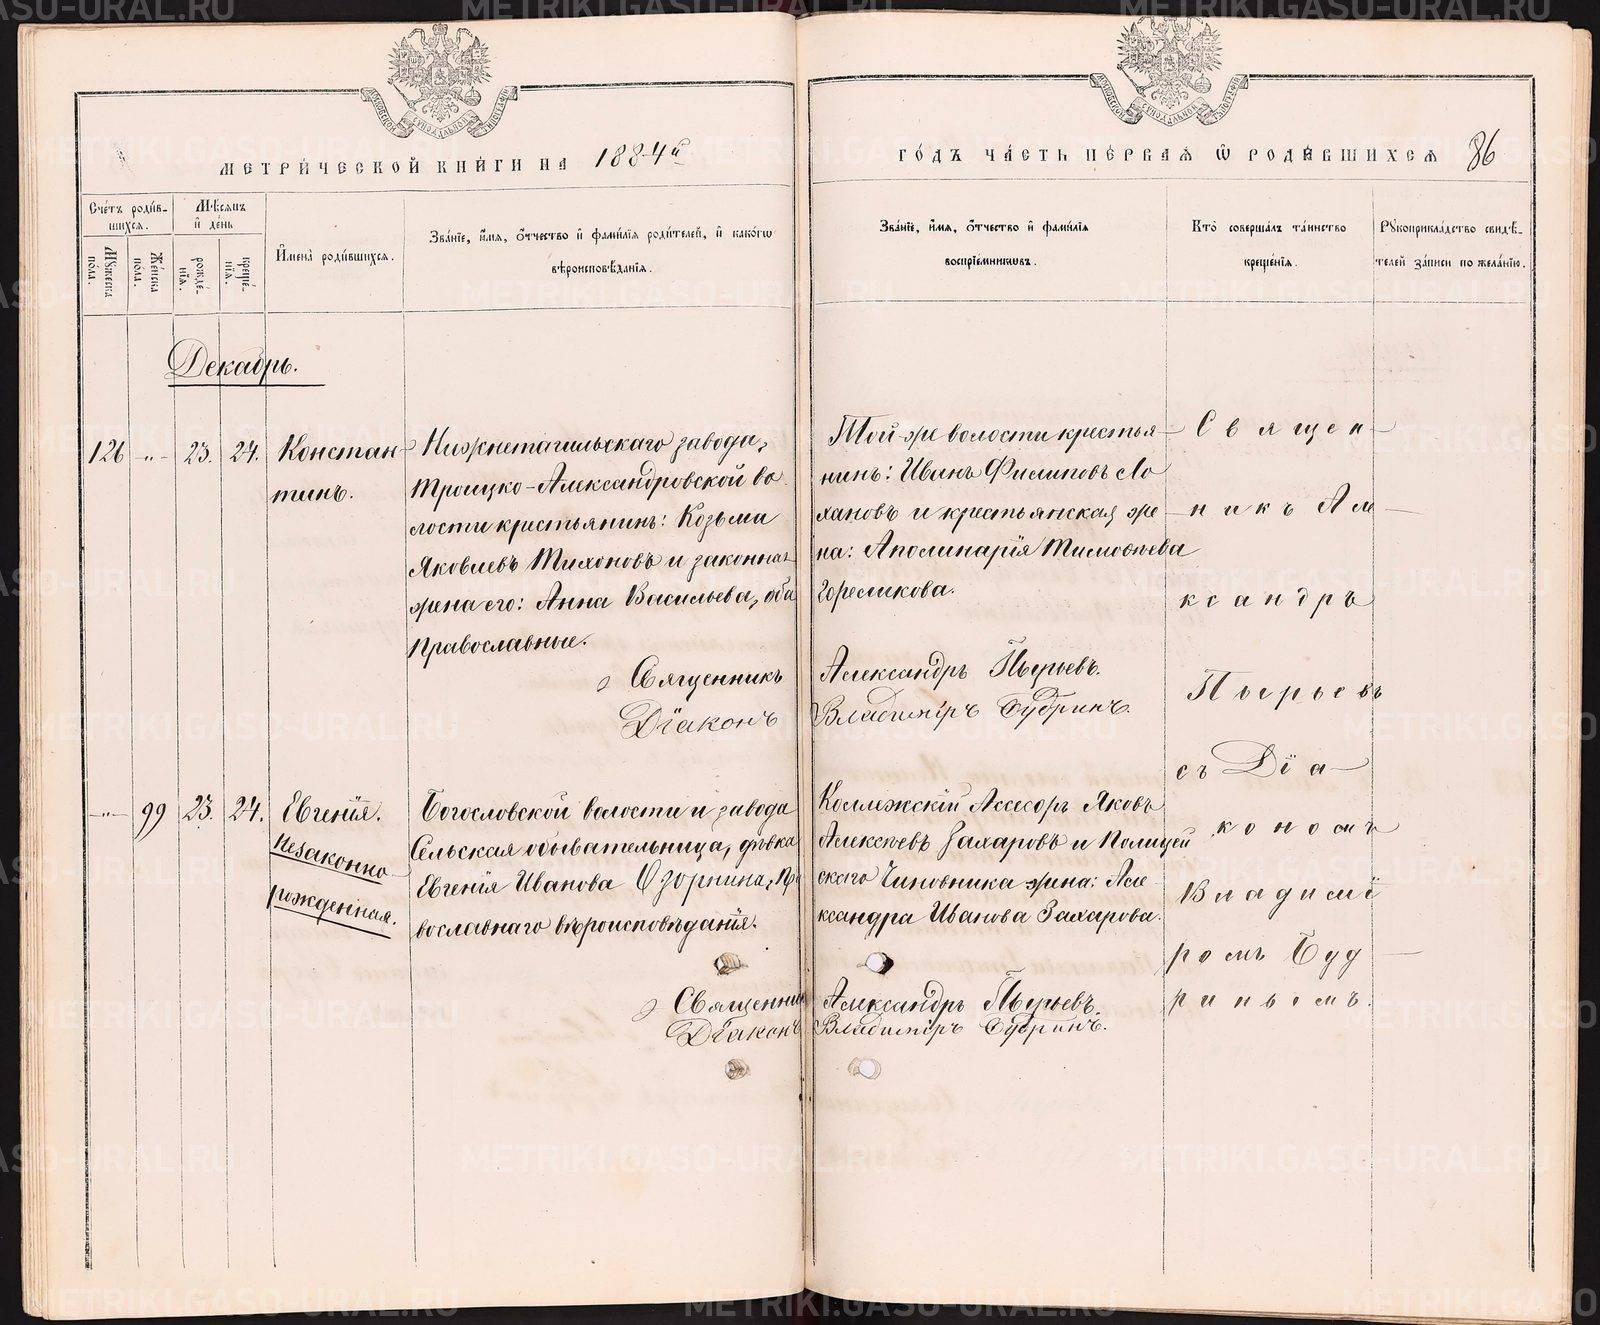 МЕТРИ́ЧЕСКОЙ КНИ́ГИ НА 1884й
ГО́ДЪ ЧА́СТЬ ПЕ́РВАЯ Ѡ РОДИ́ВШИХСЯ 86
Сче́тъ роди́в-
шихся.
Мꙋжеска пола.
Же́нска пола.
Мѣ́сяцъ
и҆ де́нь
рожде́-
нїя.
креще́-
нїя.
И҆мена̀ роди́вшихся.
Зва́нїе, и҆́мя, ѻ҆́тчество и҆ фами́лїя роди́телей, и҆ како́гѡ
вѣроисповѣ́данїя.
Зва́нїе, и҆́мя, ѻ҆́тчество и҆ фами́лїя
воспрїе́мникѡвъ.
Кто̀ соверша́лъ та́инство
креще́нїя.
Рꙋкоприкла́дство свидѣ́-
телей за́писи по жела́нїю.
Декабрь.
126 -„- 23. 24. Констан-
тинъ.
Нижнетагильскаго завода,
Троицко-Александровской во
лости крестьянинъ: Козьма
Яковлевъ Тихоновъ и законная
жена его: Анна Васильева, оба
Православные.
Той-же волости крестья-
нинъ: Иванъ Филиповъ Ло
хановъ и крестьянская же-
на: Аполинарія Тимовѣева
Горсликова.
Священникъ Александръ Пырьевъ.
Діаконъ Владиміръ Бубринъ.
Священ-
никъ Але-
ксандръ
Пырьевъ
съ Діа-
кономъ
Владимі
ромъ Буд-
ринымъ.
-„- 99 23. 24. Евгенія.
Незаконно-
рожденная.
Богословской волости и завода
Сельская обывательница, дѣвка
Евгенія Иванова Озорнина, Пра
вославнаго вѣроисповѣданія.
Коллежскій Ассесоръ Яковъ
Алексѣевъ Захаровъ и Полицей
скаго Чиновника жена: Але-
ксандра Иванова Захарова.
Священник Александръ Пырьевъ.
Діаконъ Владиміръ Бубринъ.
METRIKI.GASO-URAL.RU